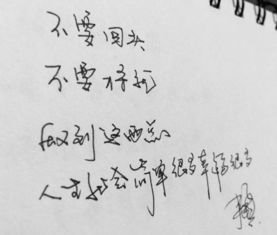 不要回头
不要将就
做到这两点
人生就会简单很多幸福很多